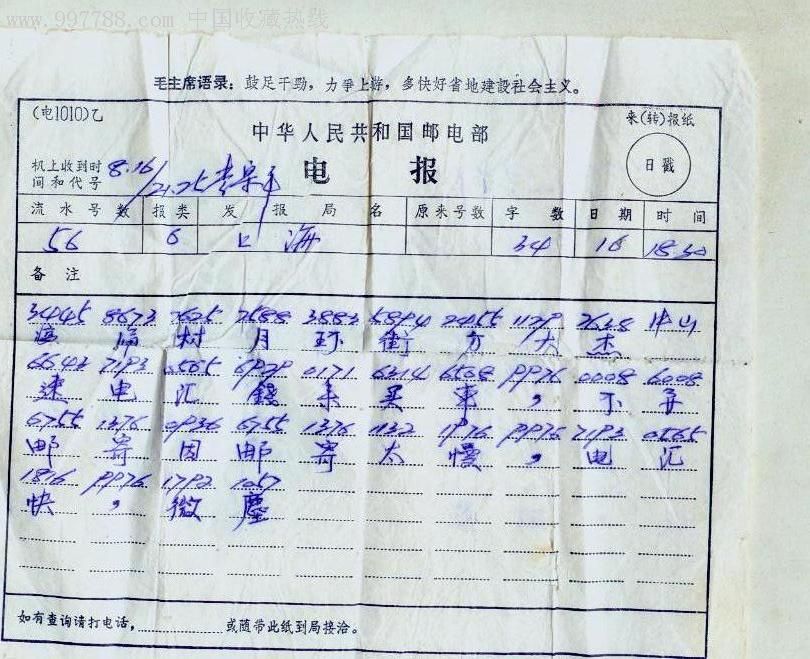 www.997788.com 中国收藏热线
毛主席语录：鼓足干劲，力争上游，多快好省地建設社会主义。
(电1010)乙
中华人民共和国邮电部
来(转)报纸
机上收到时
间和代号
8.16
21.25
电 报
日戳
流水号数 报类 发报局名 原来号数 字数 日期 时间
56 6 上海 34 16 18.30
备注
3445 8673 2625 2588 3883 5894 2455 1129 2638 中山
村 月 环 街 方 大 杰
6643 7193 0565 6929 0171 6314 6508 9976 0008 6008
速 电 汇 錢 来 买 车 ， 不 弄
6755 1376 0936 6755 1376 1132 1976 9976 7193 0565
邮 寄 因 邮 寄 太 慢 ， 电 汇
1816 9976 1792 1057
快 ， 微 塵
如有查询请打电话， 或随带此纸到局接洽。